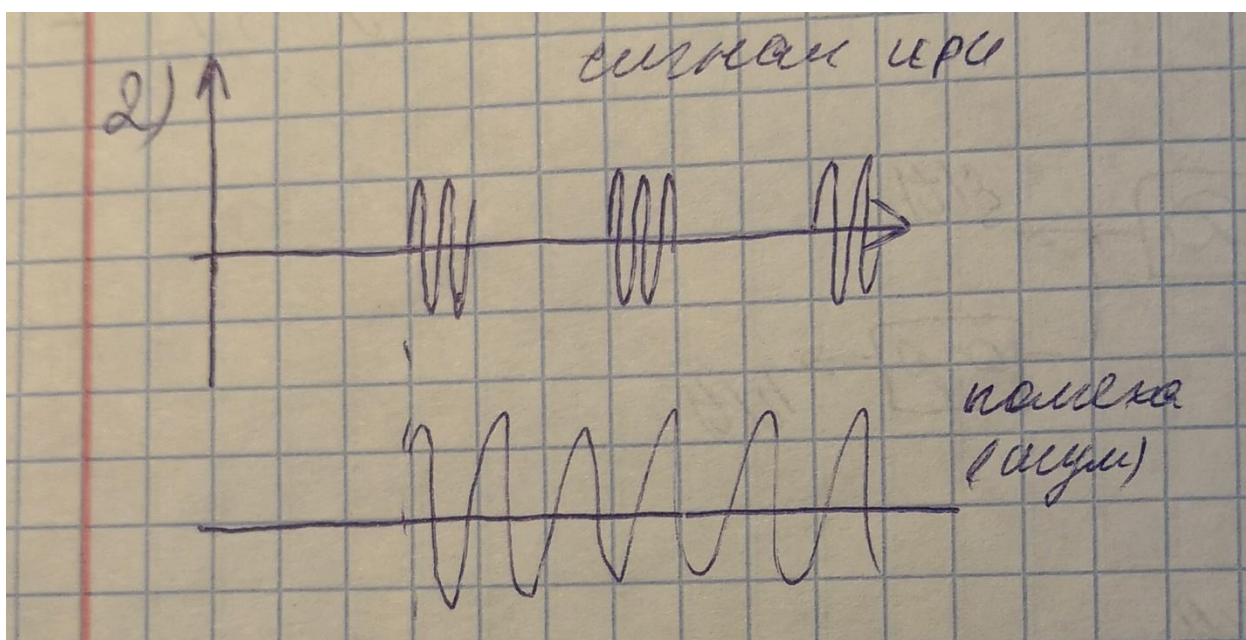 2)
сигнал ИРИ
помеха
(шум)